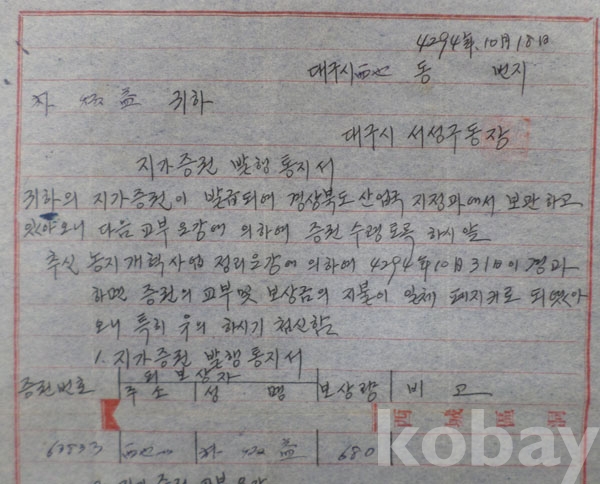 4294年.10月18日
대구시 동 번지
귀하
대구시 서성구동장
지가증권 발행통지서
귀하의 지가증권이 발급되어 경상북도 산업국 지정과에서 보관하고
있아오니 다음 교부요강에 의하여 증권 수령토록 하시앞
추신 농지개혁사업 정리요강에 의하여 4294年10月31日이 경과
하면 증권의 교부및 보상금의 지불이 일체 폐지키로 되었아
오니 특히 유의 하시기 첨신함
1. 지가증권 발행통지서
피보상자
증권번호 주소 성명 보상량 비고
西城區洞
益 680
kobay